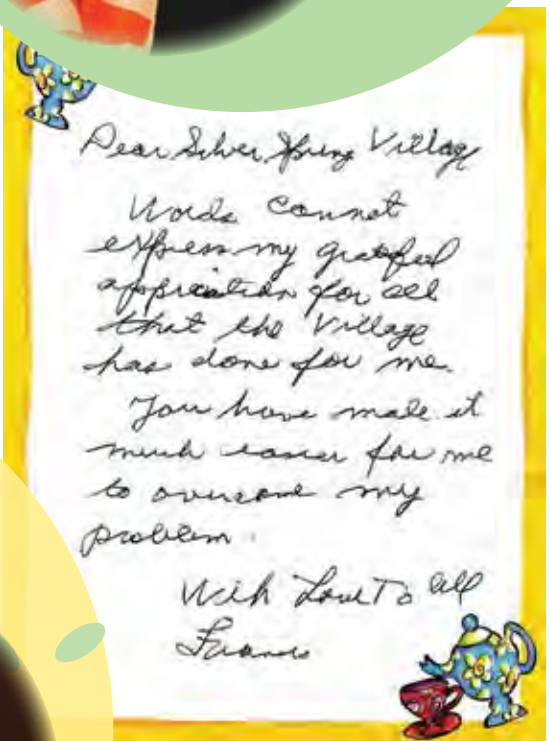 Dear Silver Spring Village
Words cannot
express my grateful
appreciation for all
that the Village
has done for me.
You have made it
much easier for me
to overcome my
problem.
With Love To All